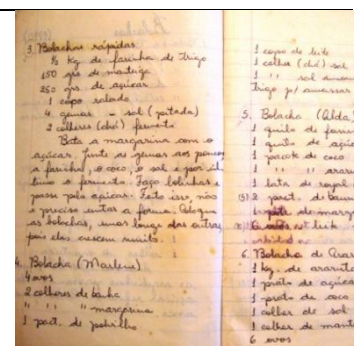 3. Bolachas rápidas
½ kg de farinha de Trigo
150 grs de manteiga
250 grs de açúcar
1 copo ralado
4 gemas - sal (pitada)
2 colheres (chá) fermento
Bata a margarina com o
açúcar. Junte as gemas aos poucos
a farinha, o coco, o sal e por úl
timo o fermento. Faça bolinhas e
passe pelo açúcar. Feito isso, não
é preciso untar a forma. Coloque
as bolachas, umas longe das outras,
pois elas crescem muito.
4. Bolacha (Marlene)
4 ovos
2 colheres de banha
1 " " margarina
1 pact. de polvilho
1 copo de leite
1 colher (chá) sal
1 " sal
Trigo p/ amassar
5. Bolacha (Alda)
1 quilo de
1 quilo de
1 pacote de coco
1 " "
1 lata de royal
2 pact. de
de
leite
6. Bolacha de
1 kg. de araruta
1 prato de açúcar
1 prato de coco
1 colher de sal
1 colher de
6 ovos